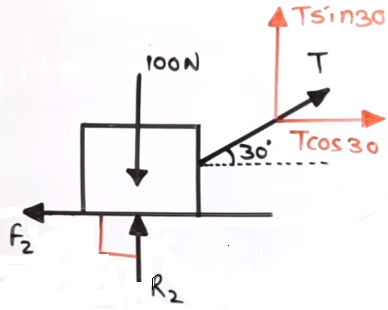 Tsin30
100N
T
30°
Tcos30
F₂
R₂